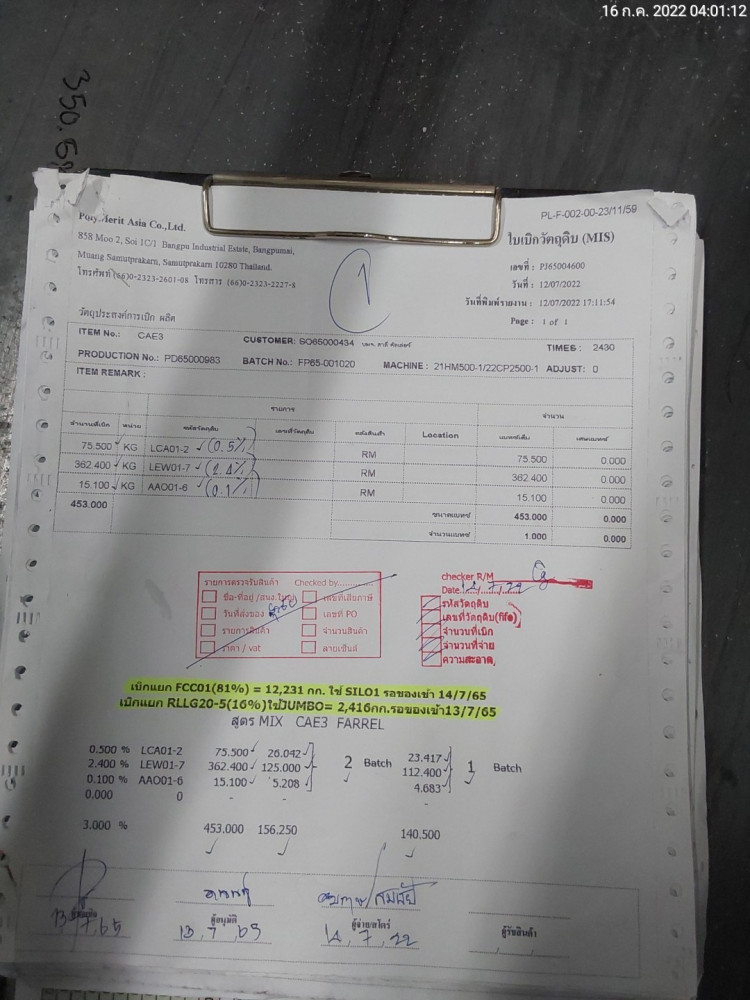 16 ก.ค. 2022 04:01:12
350.6
PL-F-002-00-23/11/59
PolyMerit Asia Co.,Ltd.
858 Moo 2, Soi 1C/1 Bangpu Industrial Estate, Bangpumai,
Muang Samutprakarn, Samutprakarn 10280 Thailand.
โทรศัพท์ (66)0-2323-2601-08 โทรสาร (66)0-2323-2227-8
1
ใบเบิกวัตถุดิบ (MIS)
เลขที่ : PJ65004600
วันที่ : 12/07/2022
วันที่พิมพ์รายงาน : 12/07/2022 17:11:54
Page : 1 of 1
วัตถุประสงค์การเบิก ผลิต
ITEM No.: CAE3 CUSTOMER: SO65000434 TIMES : 2430
PRODUCTION No.: PD65000983 BATCH No.: FP65-001020 MACHINE : 21HM500-1/22CP2500-1 ADJUST: 0
ITEM REMARK :
รายการ จำนวน
จำนวนที่เบิก หน่วย รหัสวัตถุดิบ เลขที่วัตถุดิบ คลังสินค้า Location แบทช์เต็ม เศษแบทช์
75.500 KG LCA01-2 (0.5%) RM 75.500 0.000
362.400 KG LEW01-7 (2.4%) RM 362.400 0.000
15.100 KG AAO01-6 (0.1%) RM 15.100 0.000
453.000 ขนาดแบทช์ 453.000 0.000
จำนวนแบทช์ 1.000 0.000
รายการตรวจรับสินค้า Checked by
ชื่อ-ที่อยู่ /สนง.ใหญ่ เลขที่เสียภาษี
วันที่ส่งของ เลขที่ PO
รายการสินค้า จำนวนสินค้า
ราคา / vat ลายเซ็นต์
checker R/M
Date 12/7/22
รหัสวัตถุดิบ
เลขที่วัตถุดิบ(fifo)
จำนวนที่เบิก
จำนวนที่จ่าย
ความสะอาด
เบิกแยก FCC01(81%) = 12,231 กก. ใช้ SILO1 รอของเข้า 14/7/65
เบิกแยก RLLG20-5(16%)ใช้JUMBO= 2,416กก.รอของเข้า13/7/65
สูตร MIX CAE3 FARREL
0.500 % LCA01-2 75.500 26.042 23.417
2.400 % LEW01-7 362.400 125.000 2 Batch 112.400 1 Batch
0.100 % AAO01-6 15.100 5.208 4.683
0.000 0 - - -
3.000 % 453.000 156.250 140.500
ผู้อนุมัติ ผู้จ่าย/สโตร์ ผู้รับสินค้า
13, 7, 65 13, 7, 65 14, 7, 22